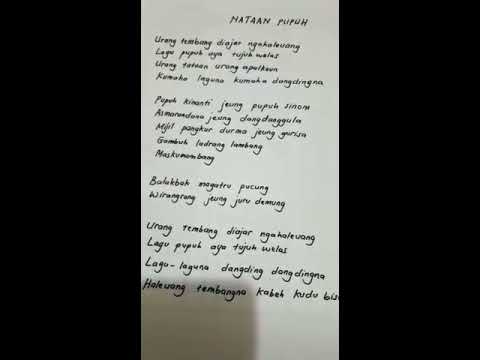 NATAAN PUPUH
Urang tembang diajar ngahaleuang
Lagu pupuh aya tujuh welas
Urang tataan urang apalkeun
Kumaha laguna kumaha dangdingna
Pupuh kinanti jeung pupuh sinom
Asmarandana jeung dangdanggula
Mijil pangkur durma jeung gurisa
Gambuh ladrang lambang
Maskumambang
Balakbak magatru pucung
Wirangrong jeung juru demung
Urang tembang diajar ngahaleuang
Lagu pupuh aya tujuh welas
Lagu-laguna dangding dangdingna
Haleuang tembangna kabeh kudu bisa